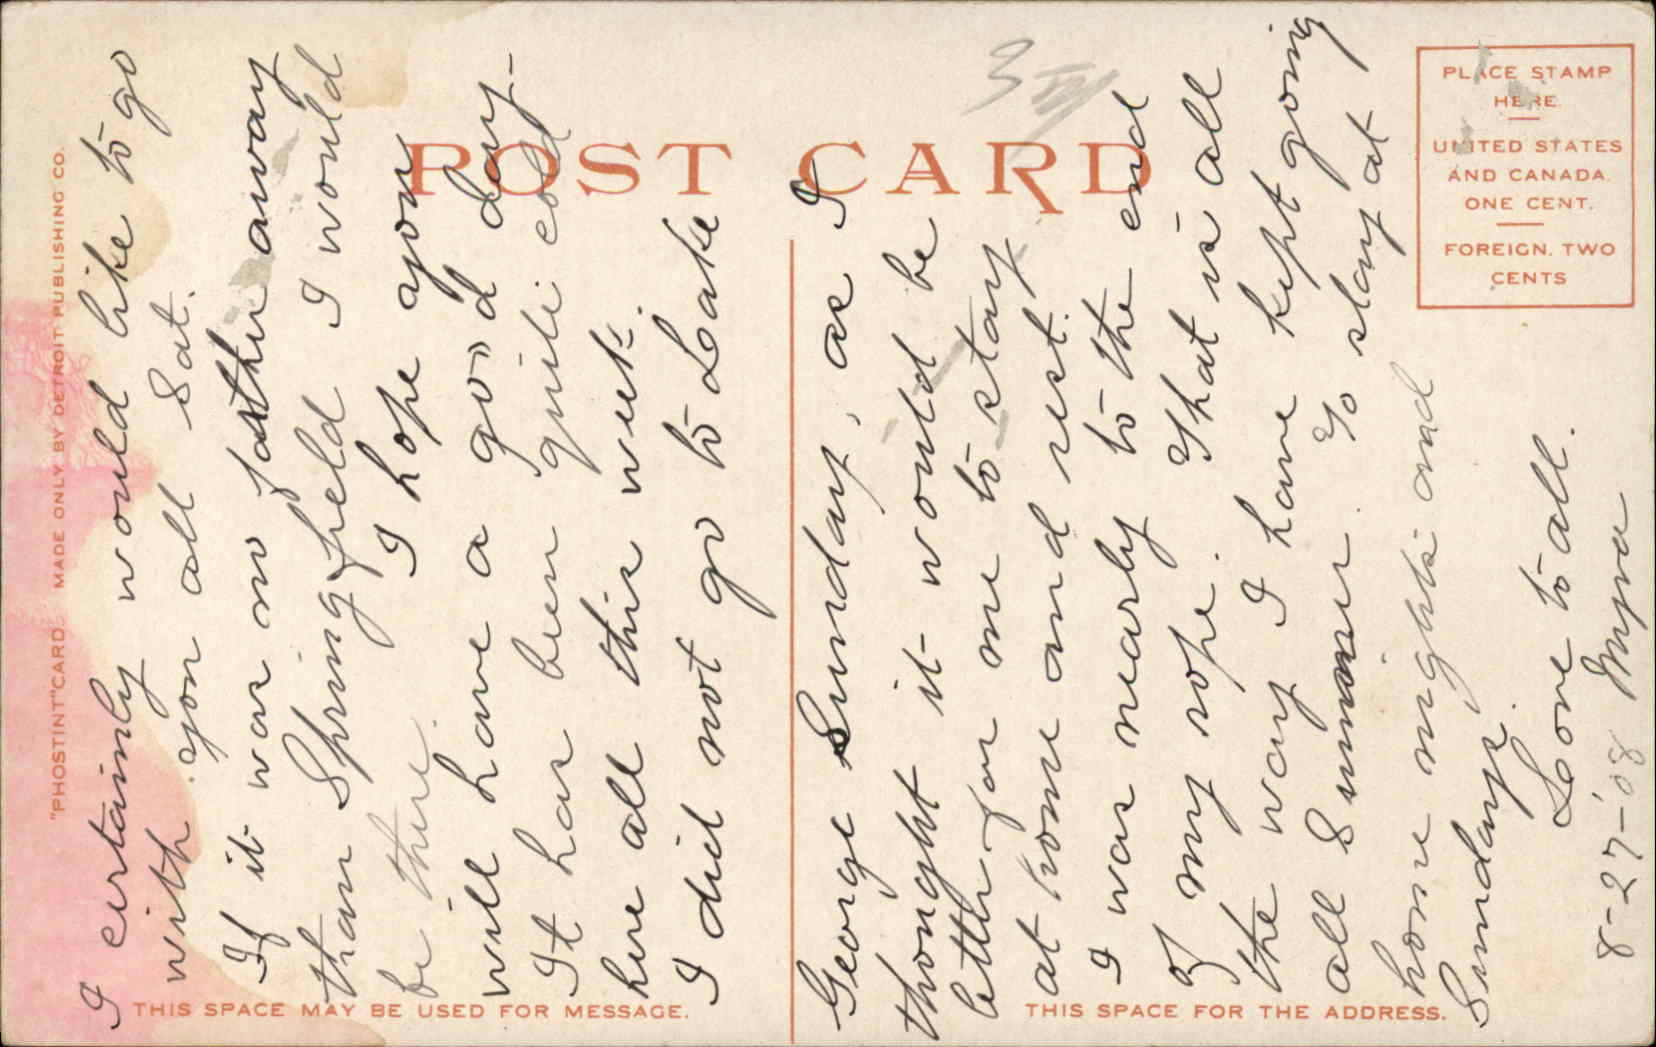 I certainly would like to go
with you all Sat.
If it was no farther away
than Springfield I would
be there. I hope you
will have a good day-
It has been quite cold
here all this week.
I did not go to Lake
George Sunday, as I
thought it would be
better for me to stay
at home and rest.
I was nearly to the end
of my rope. That is all
the way I have kept going
all Summer. To stay at
home nights and
Sundays.
Love to all.
8-27-'08 Myra
POST CARD
PLACE STAMP
HERE
UNITED STATES
AND CANADA
ONE CENT.
FOREIGN. TWO
CENTS
"PHOSTINT" CARD MADE ONLY BY DETROIT PUBLISHING CO.
THIS SPACE MAY BE USED FOR MESSAGE.
THIS SPACE FOR THE ADDRESS.